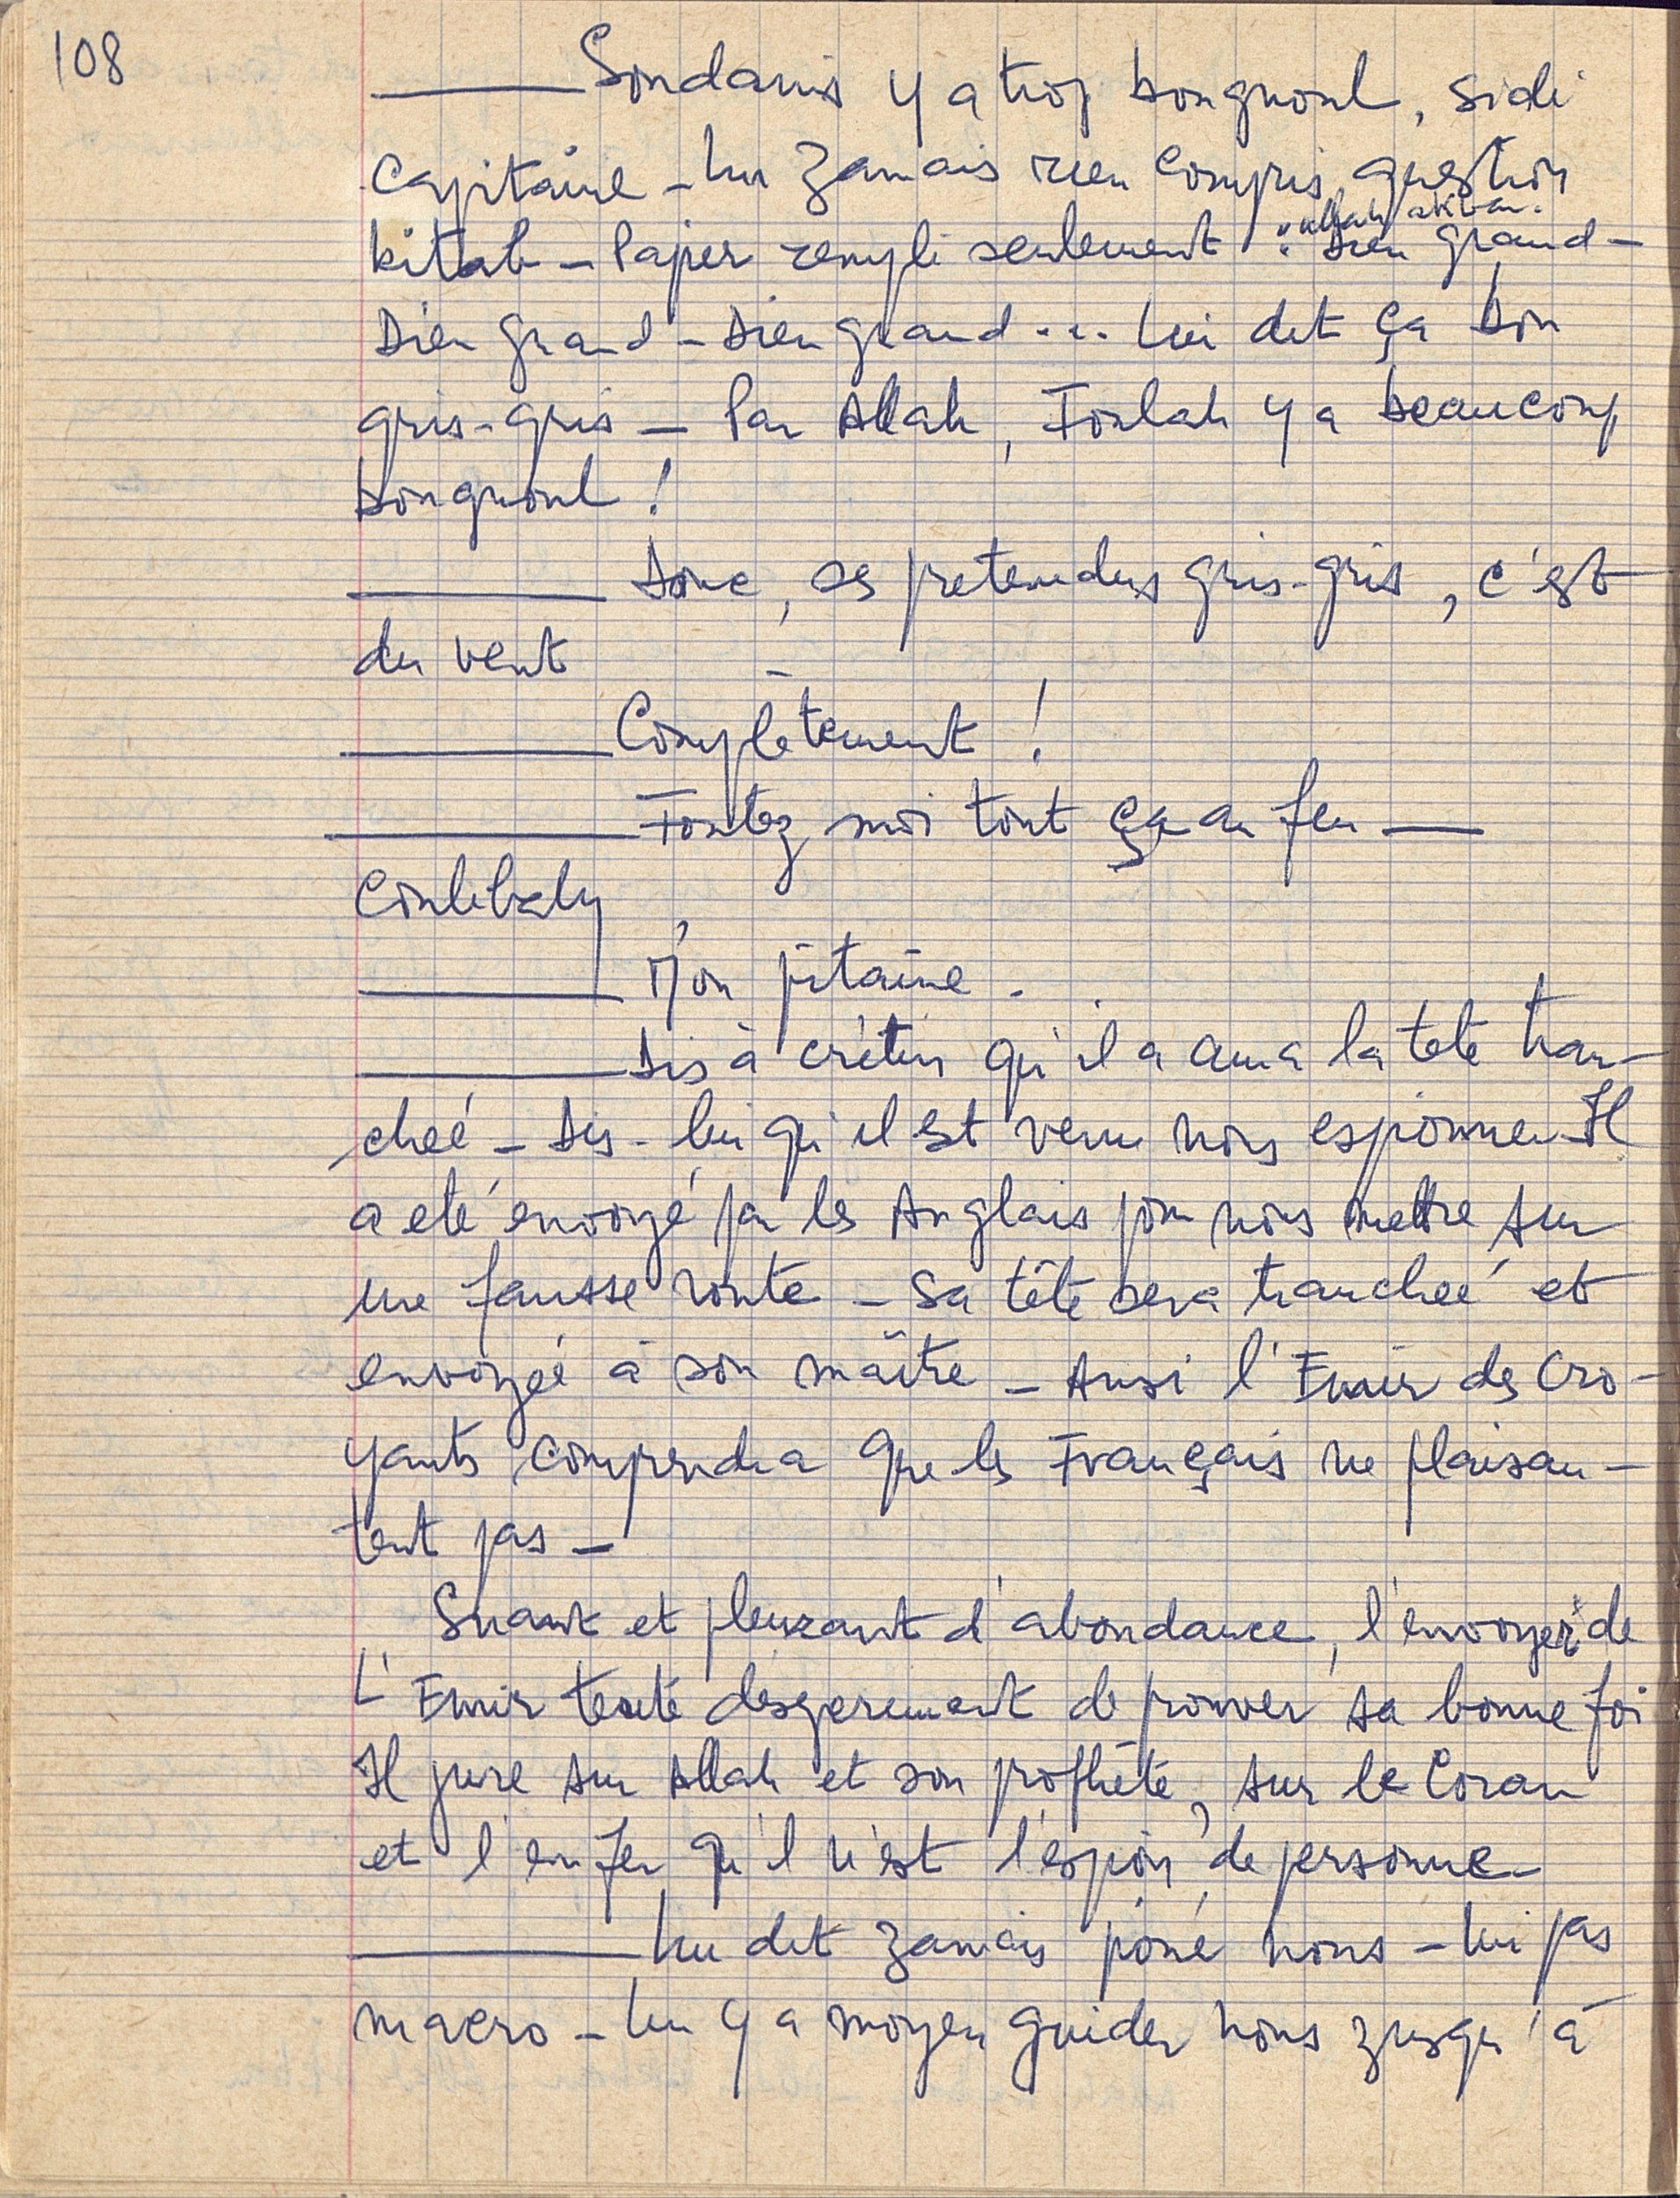 108
——— Soudanis y a trop bougnoul, sidi
Capitaine – Lui zamais rien compris question
kitab – Papier rempli seulement : "Allah akbar.
Dieu grand –
Dieu grand – Dieu grand... Lui dit ça bon
gris-gris – Par Allah, Foulah y a beaucoup
bougnoul !
——— Donc, ces pretendus gris-gris, c'est
du vent
——— Complètement !
——— Foutez moi tout ça au feu —
Coulibaly,
——— M'on pitaine.
——— Dis à crétin qu'il a aura la tete tran-
cheé – Dis-lui qu'il est venu nous espionner Il
a eté envoyé par les Anglais pour nous mettre sur
une fausse route – Sa tête sera trancheé et
envoyeé à son maître – Ainsi l'Emir des Cro-
yants comprendra que les Français ne plaisan-
tent pas –
Suant et pleurant d'abondance, l'envoyer de
L'Emir tente desperement de prouver sa bonne foi
Il jure sur Allah et son prophète, sur le Coran
et l'enfer qu'il n'est l'espion de personne –
——— Lui dit zamais poné nous – Lui pas
macro – Lui y a moyen guider nous zusqu'à